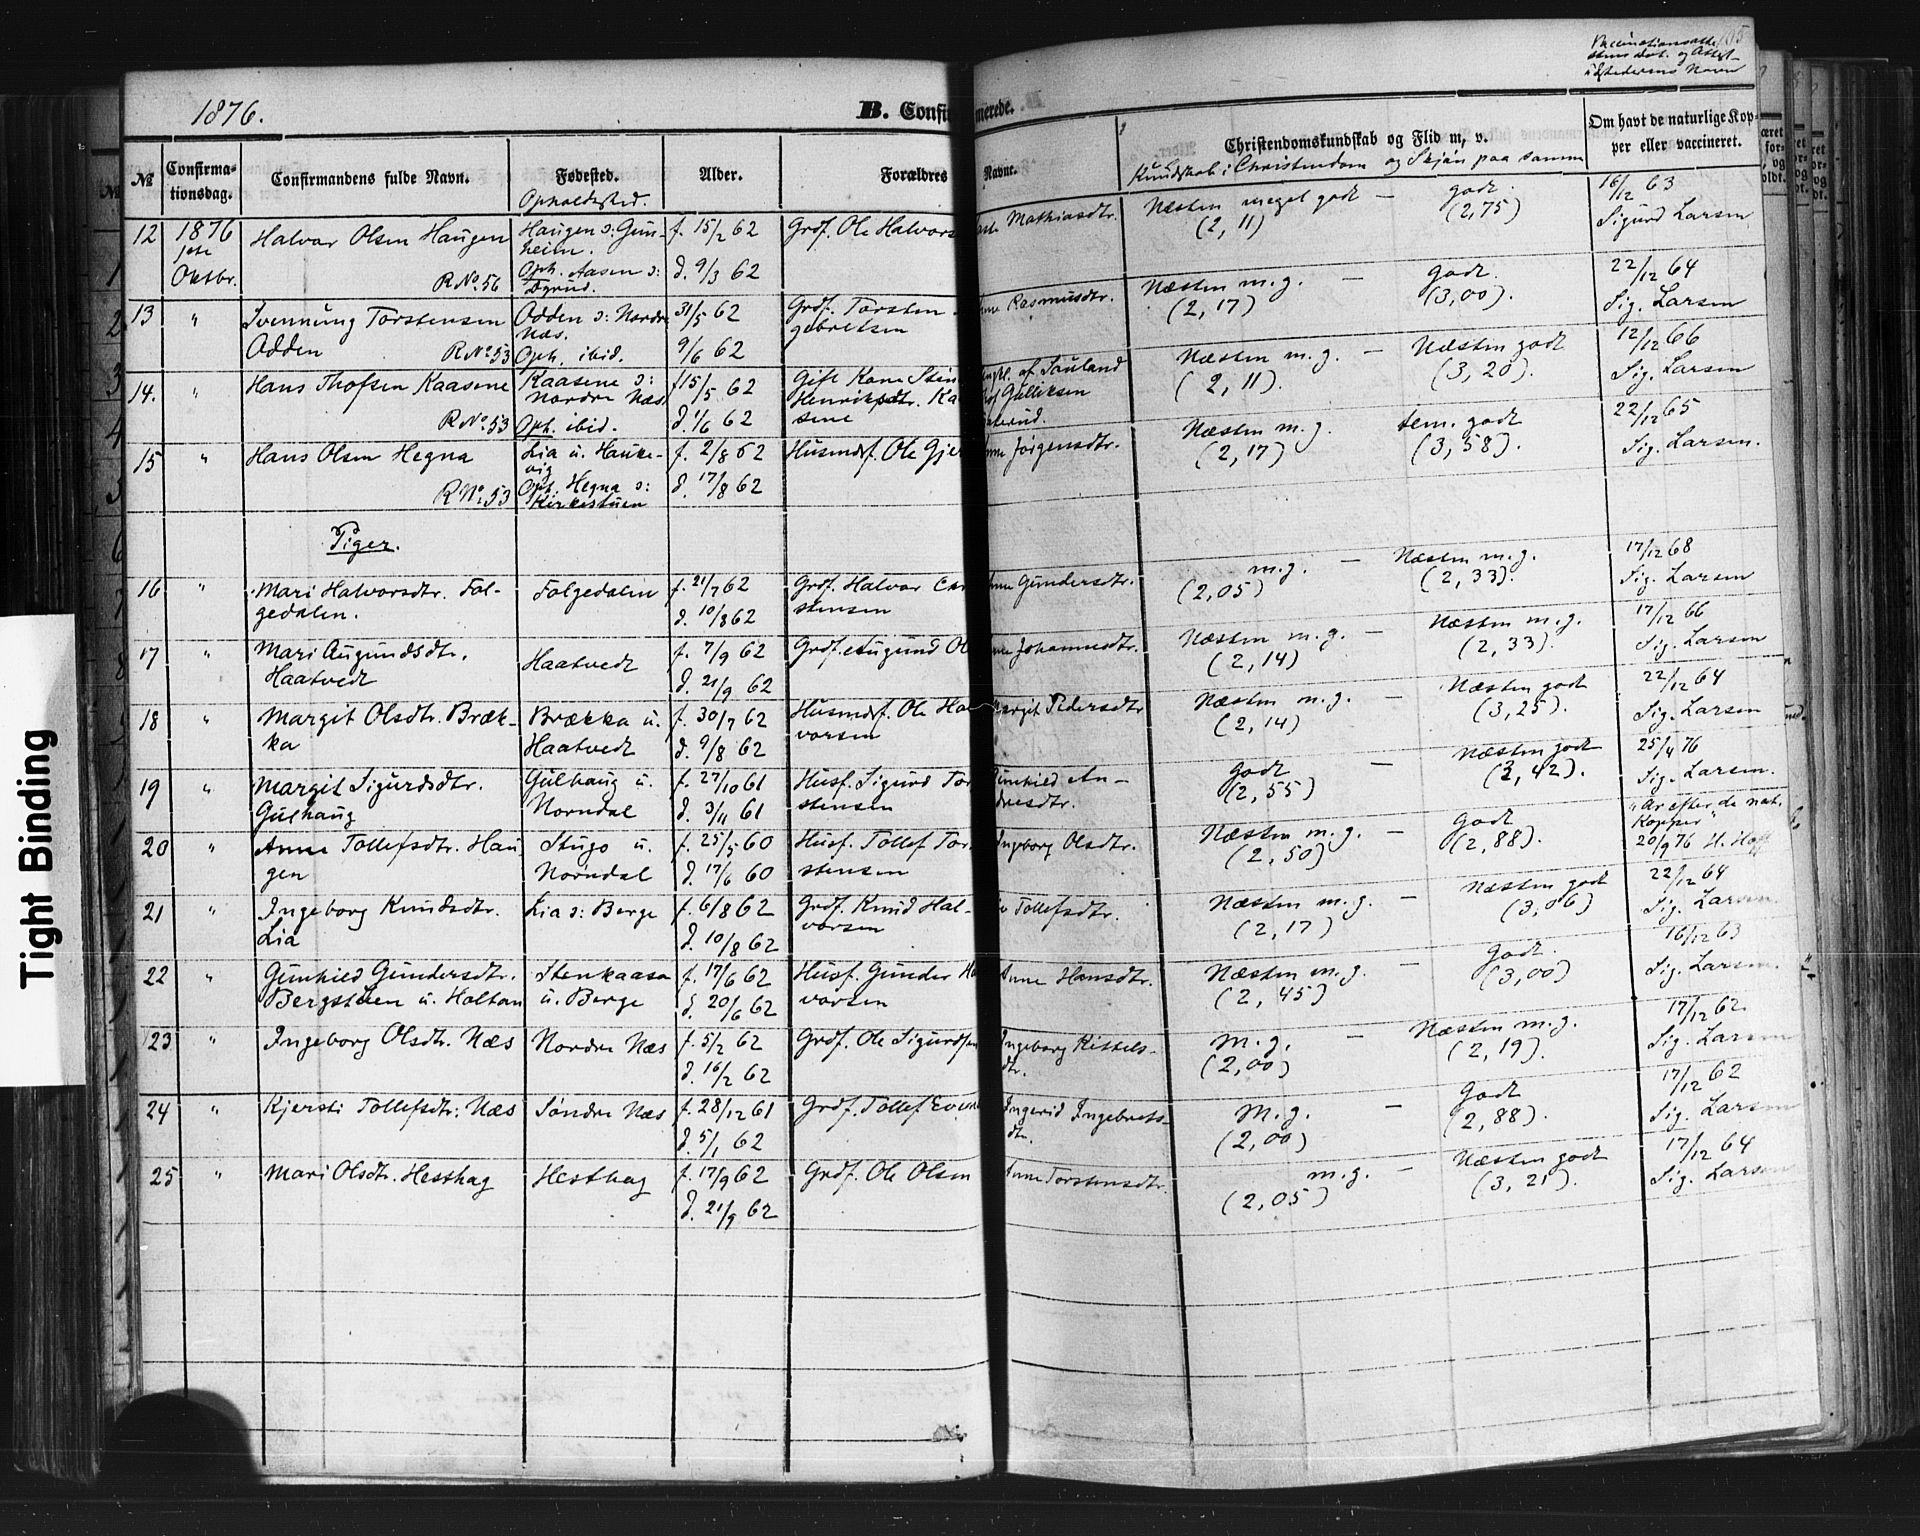 Tight Binding
1876.
B. Confir merede.
105
Vaccinationsatte
stens dat. og Attest-
udstederens Navn
№
Confirma-
tionsdag.
Confirmandens fulde Navn.
Fødested.
Opholdssted.
Alder.
Forældres Navne.
Christendomskundskab og Flid m. v.
Kundskab i Christendom og Skjøn paa samme
Om havt de naturlige Kop-
per eller vaccineret.
12 1876 Halvar Olsen Haugen Haugen o: Gun- f. 15/2 62 Grdf. Ole Halvors Mathiasdtr. Næsten meget godt — godt. 16/12 63
1ste heim. (2,11) (2,75) Sigurd Larsen
Oktbr. R.No. 56 Oph. Aasen o: d. 9/3 62
grud.
13 " Svennung Torstensen Odden o: Nordre 31/5 62 Grdf. Torsten Rasmusdtr. Næsten m. g. — godt. 22/12 64
Odden Næs. gebretsen (2,17) (3,00). Sig. Larsen
R No 53 Oph. ibid. 9/6 62
14. " Hans Thofsen Kaasene Kaasene o: f 15/5 62 Gift Kone af Sauland Næsten m. g. — Næsten godt 12/12 66
Nordre Næs Henriksdtr. Ka Gulliksen (2,11). (3,20). Sig. Larsen
R No 53 Oph. ibid. d. 1/6 62 sene
15 " Hans Olsen Hegna Lia u. Hauke- f. 2/8 62 Husmdsf. Ole Gje Jørgensdtr. Næsten m. g. tem. godt 22/12 65
vig (2,17) (3,58). Sig. Larsen.
R No. 53 Oph. Hegna o: d. 17/8 62
Kirkestuen
Piger.
16 " Mari Halvorsdtr. Fol- Folgedalen f. 21/7 62 Grdf. Halvor Gundersdtr. m. g. — Næsten m. g. 17/12 68
gedalen. d. 10/8 62 stensen (2,05) (2,33). Sig. Larsen
17 " Mari Augundsdtr. Haatvedt f. 7/9 62 Grdf. Augund Ol Johannesdtr. Næsten m. g. — Næsten m. g. 17/12 66
Haatvedt d. 21/9 62 (2,14) (2,33). Sig. Larsen
18 " Margit Olsdtr. Bræk- Brækka u. f. 30/7 62 Husmdsf. Ole Hal Margit Pedersdtr Næsten m. g. — Næsten godt 22/12 64
ka Haatvedt d. 9/8 62 vorsen (2,14) (3,25). Sig. Larsen
19 " Margit Sigurdsdtr. Gulhaug u. f. 27/10 61 Husf. Sigurd Tor Gunhild An- godt — Næsten godt 25/4 76
Gulhaug Norndal d. 3/11 61 stensen dresdtr. (2,55) (3,42). Sig. Larsen.
20 " Anne Tollefsdtr. Hau Stugo u. f. 25/5 60 Husf. Tollef Tor Ingeborg Olsdtr. Næsten m. g. — godt "Ar efter de nat.
gen Norndal d. 17/6 60 stensen (2,50) (2,88). Kopper"
20/9 76 H. Hoff
21 " Ingeborg Knudsdtr. Lia o: Berge f. 6/8 62 Grdf. Knud Hal- Tollefsdtr. Næsten m. g. — Næsten godt 22/12 64
Lia d. 10/8 62 vorsen (2,17) (3,06) Sig. Larsen.
22 " Gunhild Gundersdtr. Stenkaasa f. 17/6 62 Husf. Gunder Ha Anne Hansdtr. Næsten m. g. — Godt. 16/12 63
Bergstuen u. Holtan u. Berge d. 20/6 62 vorsen (2,45) (3,00) Sig. Larsen.
23 " Ingeborg Olsdtr. Næs Nordre Næs f. 5/2 62 Grdf. Ole Sigurdsen Ingeborg Kittels- M. g. — Næsten m. g. 17/12 62
d. 16/2 62 dtr. (2,00) (2,19). Sig. Larsen
24 " Kjersti Tollefsdtr. Næs Søndre Næs f. 28/12 61 Grdf. Tollef Even Ingerid Ingebrets- M. g. — Godt 17/12 62
d. 5/1 62 dtr. (2,00) (2,88). Sig. Larsen
25 " Mari Olsdtr. Hesthag Hesthag f. 17/9 62 Grdf. Ole Olsen Anne Torstensdtr. m. g. — Næsten godt 17/12 64
d. 21/9 62 (2,05) (3,21). Sig. Larsen